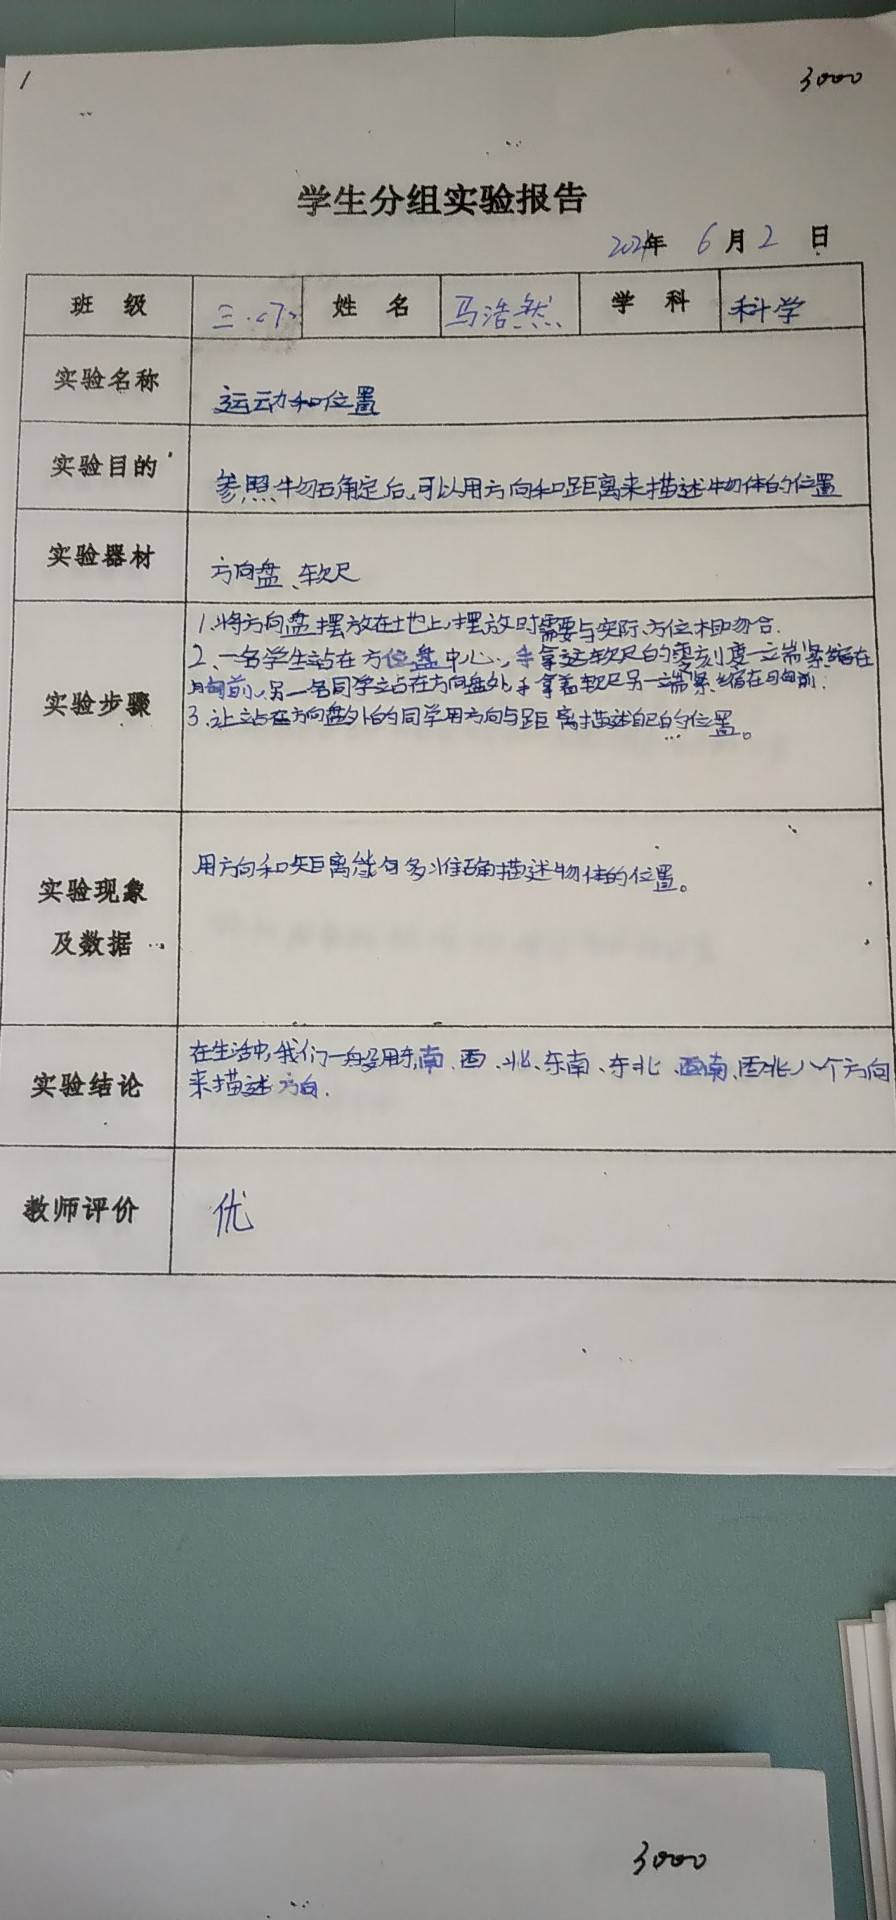 3000
学生分组实验报告
2021年 6月2日
班级 三.<7> 姓名 马浩然 学科 科学
实验名称 运动和位置
实验目的 参照物确定后,可以用方向和距离来描述物体的位置
实验器材 方向盘、软尺
实验步骤
1.将方向盘摆放在地上,摆放时需要与实际方位相吻合.
2、一名学生站在方位盘中心,手拿这软尺的零刻度一端紧缩在
胸前,另一名同学站在方向盘外,手拿着软尺另一端紧缩在胸前.
3.让站在方向盘外的同学用方向与距离描述自己的位置。
实验现象
及数据
用方向和距离能够准确描述物体的位置。
实验结论
在生活中,我们一般用东,南、西、北、东南、东北、西南、西北八个方向
来描述方向.
教师评价 优
3000